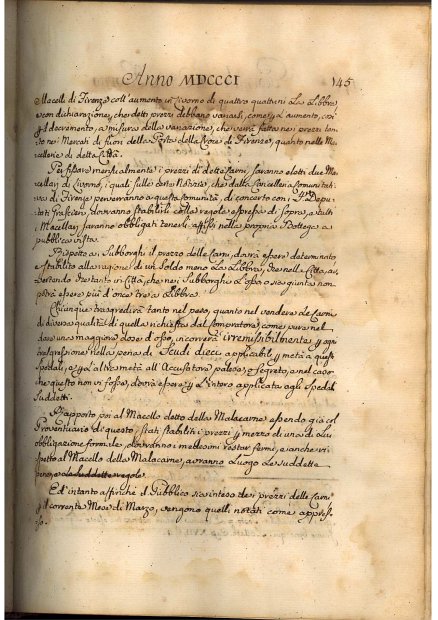 Anno MDCCCI 145
Macelli di Firenze coll'aumento in Livorno di quattro quattrini La Libbra,
e con dichiarazione, che detti prezzi debbano variarsi, come p l'aumento, così
p il decremento, a misura della variazione, che verrà fatta nei prezzi tan=
to nei Mercati di fuori della Porta della Croce di Firenze, quanto nelle Ma
cellerie di detta Città.
Per fissare mensialmente i prezzi di dette Carni, saranno eletti due Ma
cellarj di Livorno, i quali sulle certe Notizie, che dalla Cancelleria Comunitati
va di Firenze perverranno a questa Comunità, di concerto con i SS.ri Depu=
tati Grascieri, dovranno stabilirli colla regola espressa di sopra, e tutti
i Macellarj saranno obbligati tenerli affissi nella propria Bottega a
pubblica vista.
Rispetto ai Subborghi il prezzo delle Carni, dovrà essere determinato
e stabilito alla ragione di un Soldo meno La Libbra, che nella Città, av
vertendo che tanto in Città, che nei Subborghi L'osso o sia giunta non
potrà essere più d'once tre a Libbra.
Chiunque trasgredirà tanto nel peso, quanto nel vendere la Carne
di diversa qualità di quella richiesta dal Compratore, come pure nel
dare una maggiore dose d'osso, incorrerà irremissibilmente p ogni
trasgressione nella pena di Scudi dieci applicabili p metà a questi
Spedali, e p l'altra metà all'Accusatore palese, o segreto, e nel caso
che questo non vi fosse, dovrà essere p L'intero applicata agli Spedali
Suddetti.
Rapporto poi al Macello detto della Malacarne essendo già col
Proventuario di questo, stati stabiliti i prezzi p mezzo di una di Lui
obbligazione formale, dovranno i medesimi restar fermi, e anche ri
spetto al Macello della Malacarne, avranno Luogo Le suddette
pene, e le suddette regole.
Ed intanto affinchè il Pubblico sia inteso dei prezzi delle Carni
p il corrente Mese di Marzo, vengono quelli notati come appres=
so.